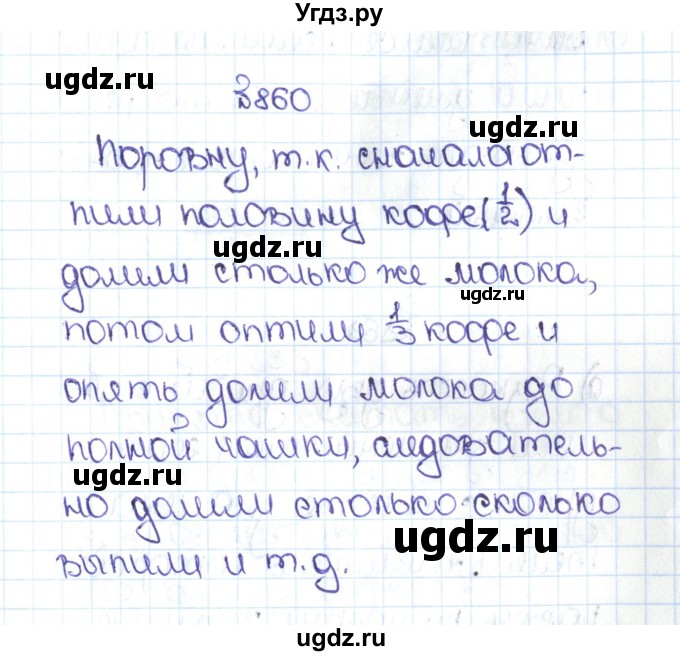 Угдз.ру
ugdz.ru
№860
ugdz.ru
Поровну, т.к. сначала от-
пили половину кофе(1/2) и
ugdz.ru
долили столько же молока,
ugdz.ru
потом оптили 1/3 кофе и
опять долили молока до
полной чашки, следователь-
ugdz.ru
но долили столько сколько
ugdz.ru
выпили и т.д.
ugdz.ru